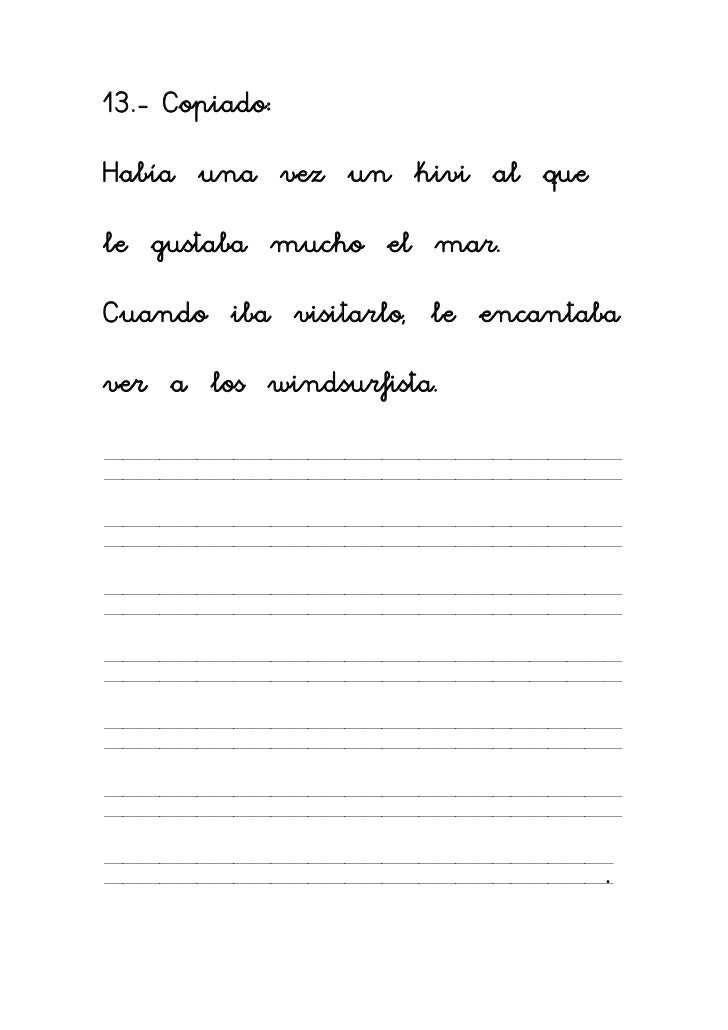 13.- Copiado:
Había una vez un kivi al que
le gustaba mucho el mar.
Cuando iba visitarlo, le encantaba
ver a los windsurfista.
.